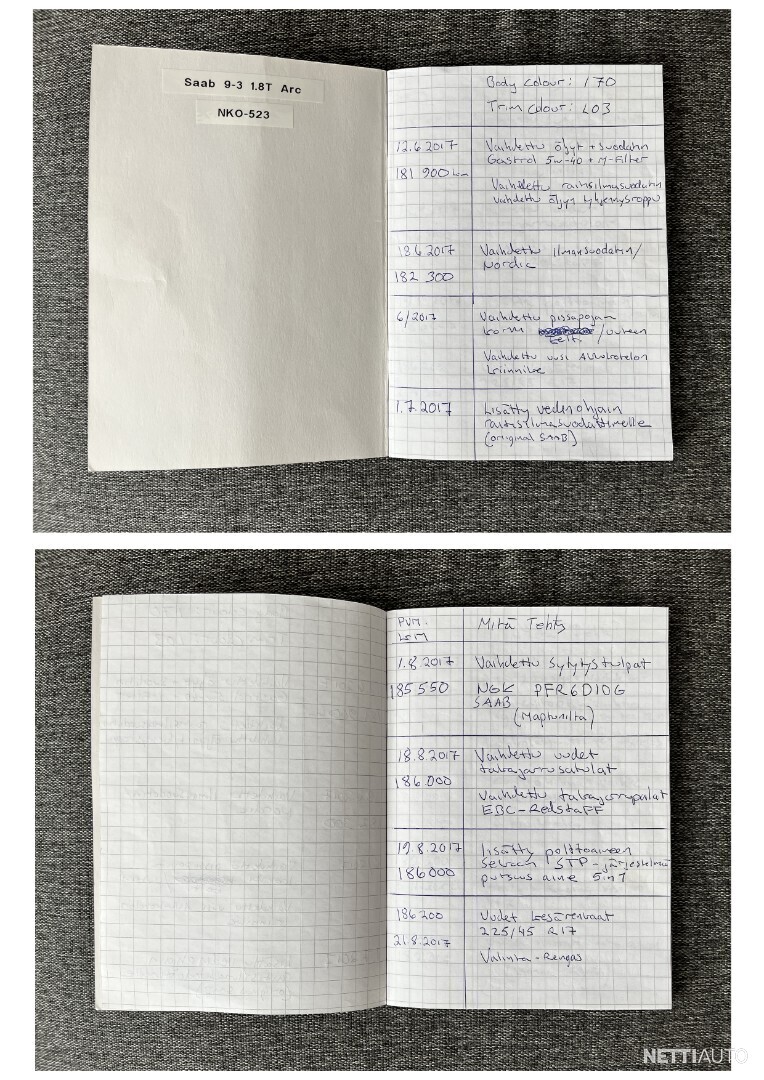 Saab 9-3 1.8T Arc
NKO-523
Body colour: 170
Trim colour: L03
12.6.2017 Vaihdettu öljyt + suodatin
Castrol 5w-40 + M-Filter
181 900 km
Vaihdettu raitisilmasuodatin
vaihdettu öljyn tyhjennysproppu
18.6.2017 Vaihdettu ilmansuodatin/
Nordic
182 300
6/2017 Vaihdettu pissapojan
korvi /uuteen
Vaihdettu uusi Akkukotelon
kiinnike
1.7.2017 Lisätty vedenohjain
raitisilmasuodattimelle
(original SAAB)
PVM. Mitä Tehty
km
1.8.2017 Vaihdettu sytytystulpat
185 550 NGK PFR6D10G
SAAB
(Maptunilta)
18.8.2017 Vaihdettu uudet
takajarrusatulat
186.000
Vaihdettu takajarrupalat
EBC-RedstaFF
19.8.2017 Lisätty polttoaineen
186000 sekaan STP-järjestelmä
putsaus aine 5in1
186 200 Uudet kesärenkaat
225/45 R17
21.8.2017
Valinta-Rengas
NETTIAUTO